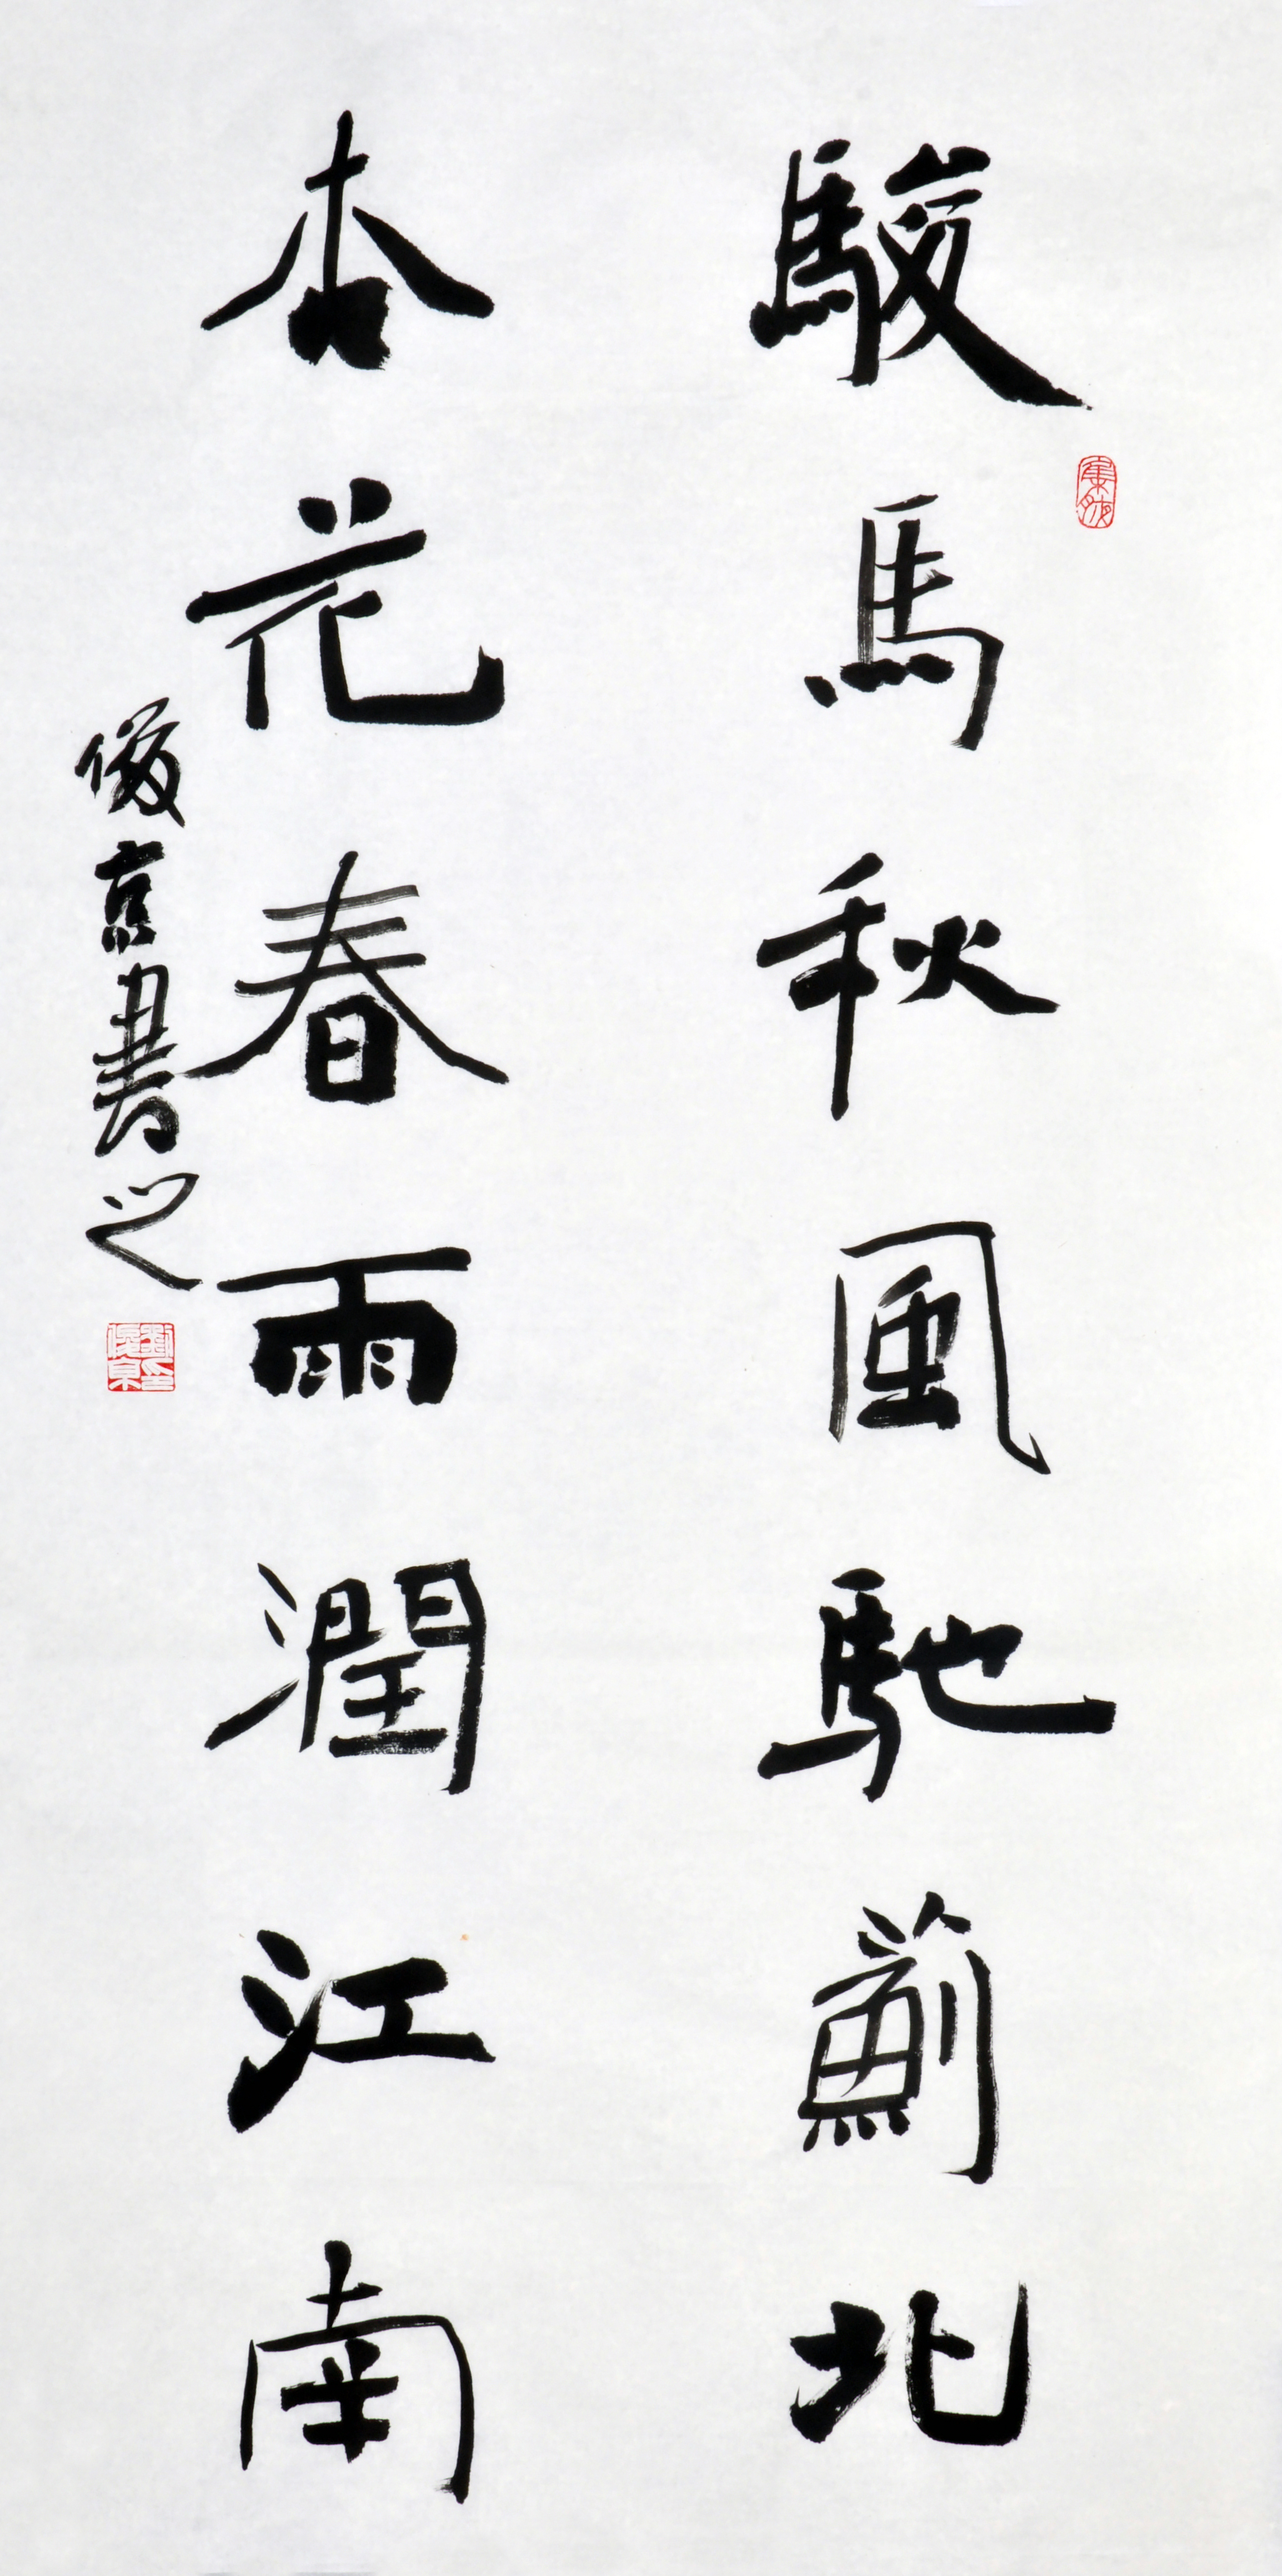 駿馬秋風馳薊北
杏花春雨潤江南
俊京書之